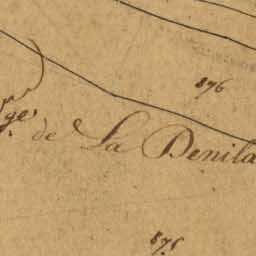 876
ge
de La Denila
876